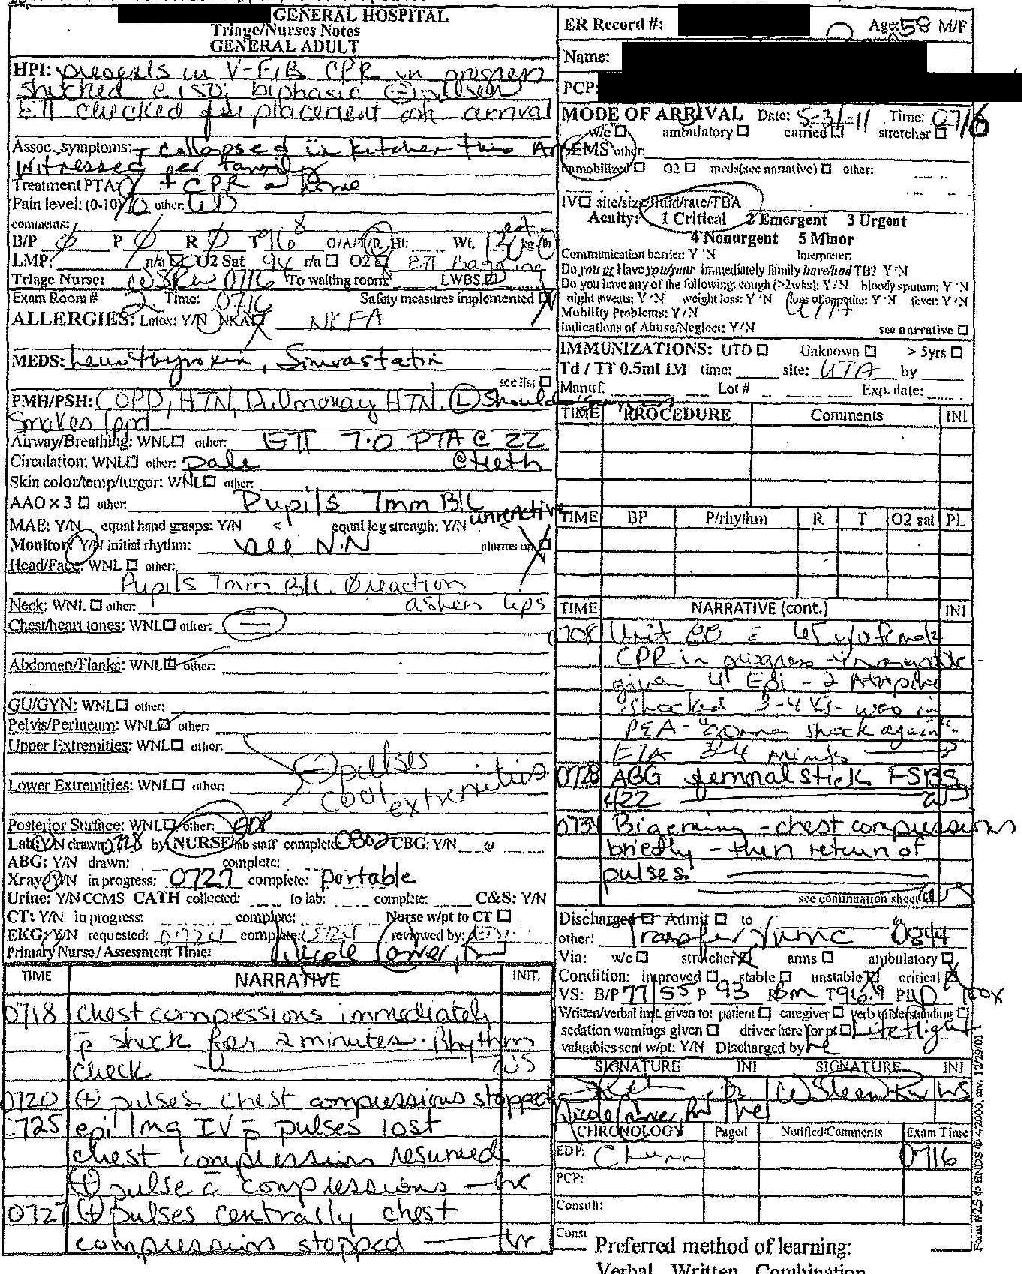 GENERAL HOSPITAL
Triage/Nurses Notes
GENERAL ADULT
HPI: presents in V-Fib CPR in progress
shocked @ 150j biphasic
ETT checked for placement on arrival
Assoc. symptoms: collapsed in kitchen this AM
Witnessed per family
Treatment PTA: + CPR
Pain level: (0-10) other:
comments:
B/P P R T 96.8 O/A/T/R Ht: Wt. 120 kg/lb
LMP: n/a O2 Sat 94 r/a O2 ETT Bagging
Triage Nurse: 0716 To waiting room LWBS
Exam Room # 2 Time: 0716 Safety measures implemented
ALLERGIES: Latex: Y/N NKA NKFA
MEDS: Levothyroxin, Simvastatin
see list
PMH/PSH: COPD, HTN, Pulmonary HTN, (L) Should
Smokes 1ppd
Airway/Breathing: WNL other: ETT 7.0 PTA @ 22
Circulation: WNL other: Pale @teeth
Skin color/temp/turgor: WNL other:
AAO x 3 other: Pupils 7mm B/L
unreactive
MAE: Y/N equal hand grasps: Y/N equal leg strength: Y/N
Monitor: Y/N initial rhythm: see N.N alarms on
Head/Face: WNL other:
Pupils 7mm B/L Ø reaction
Neck: WNL other: ashen lips
Chest/heart tones: WNL other: —
Abdomen/Flanks: WNL other:
GU/GYN: WNL other:
Pelvis/Perineum: WNL other:
Upper Extremities: WNL other:
pulses
cool extremities
Lower Extremities: WNL other:
Posterior Surface: WNL other:
Lab: Y/N drawn 0728 by NURSE/lab staff complete: 0802 CBG: Y/N @
ABG: Y/N drawn: complete:
Xray: Y/N in progress: 0727 complete: portable
Urine: Y/N CCMS CATH collected: to lab: complete: C&S: Y/N
CT: Y/N in progress: complete: Nurse w/pt to CT
EKG: Y/N requested: 0724 complete: reviewed by:
Primary Nurse/Assessment Time:
TIME NARRATIVE INIT.
0718 Chest compressions immediately
p shock for 2 minutes. Rhythm
check
0720 (+) pulses chest compressions stopped
0725 epi 1mg IV p pulses lost
chest compression resumed
(+) pulse c compressions
0727 (+) pulses centrally chest
compressions stopped
ER Record #: Age: 58 M/F
Name:
PCP:
MODE OF ARRIVAL Date: 5-31-11 Time: 0716
w/c ambulatory carried stretcher
EMS other:
immobilized O2 meds(see narrative) other:
IV site/size/fluid/rate/TBA
Acuity: 1 Critical 2 Emergent 3 Urgent
4 Nonurgent 5 Minor
Communication barrier: Y N Interpreter:
Do you or Have you/your immediately family have/had TB? Y N
Do you have any of the following: cough (>2wks): Y N bloody sputum: Y N
night sweats: Y N weight loss: Y N loss of appetite: Y N fever: Y/N
Mobility Problems: Y/N
Indications of Abuse/Neglect: Y/N see narrative
IMMUNIZATIONS: UTD Unknown > 5yrs
Td / TT 0.5ml IM time: site: UTA by
Manuf: Lot # Exp. date:
TIME PROCEDURE Comments INI
TIME BP P/rhythm R T O2 sat PL
TIME NARRATIVE (cont.) INI
0708 Unit 88 c 65 y/o female
CPR in progress
given 4 Epi - 2 Atropine
shocked 3-4 xs - was in
PEA - "gonna shock again"
ETA 3-4 mints
0728 ABG femoral stick FSBS
422
0731 Bigeminy - chest compressions
briefly - then return of
pulses
see continuation sheet
Discharged Admit to
other: Transfer 0844
Via: w/c stretcher arms ambulatory
Condition: improved stable unstable critical
VS: B/P 77/55 P 93 R T 96.9
Written/verbal inst given to: patient caregiver verb understanding
sedation warnings given driver here for pt Lifeflight
valuables sent w/pt: Y/N Discharged by
SIGNATURE INI SIGNATURE INI
CHRONOLOGY Paged Notified/Comments Exam Time
EDP: 0716
PCP:
Consult:
Const
Preferred method of learning:
Verbal Written Combination